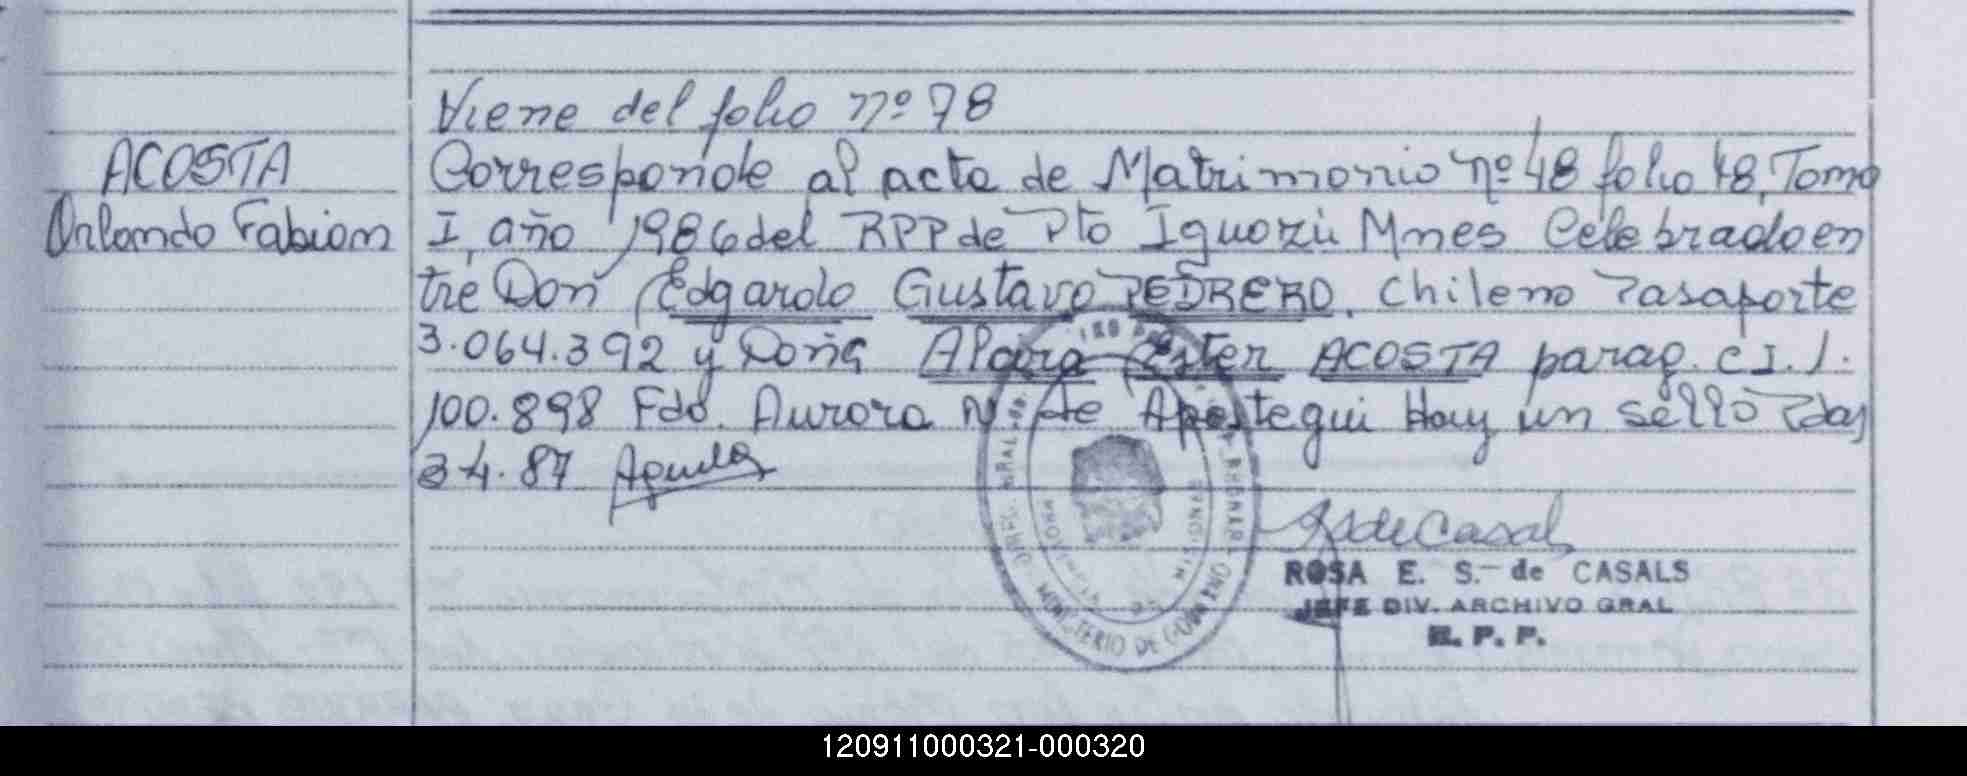 Viene del folio nº 78
ACOSTA
Orlando Fabian
Corresponde al acta de Matrimonio nº 48 folio 48, Tomo
I, año 1986 del RPP de Pto Iguazú Mnes Celebrado en
tre Don Edgardo Gustavo PEDRERO. Chileno Pasaporte
3.064.392 y Doña Alcira Ester ACOSTA parag. C I. 1.
100.898 Fdo. Aurora N de Apestegui Hay un sello Pdas
3 4. 87
MINISTERIO DE GOBIERNO
MISIONES
ROSA E. S. de CASALS
JEFE DIV. ARCHIVO GRAL
R. P. P.
120911000321-000320